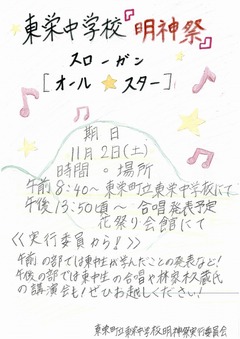 東栄中学校『明神祭』
スローガン
[オール☆スター]
期日
11月2日(土)
時間・場所
午前8:40～東栄町立東栄中学校にて
午後13:50頃～合唱発表予定
花祭り会館にて
≪実行委員から!≫
午前の部では東中生が学んだことの発表など!
午後の部では東中生の合唱や林家久蔵氏
の講演会も!ぜひお越しください!
東栄町立東栄中学校明神祭実行委員会